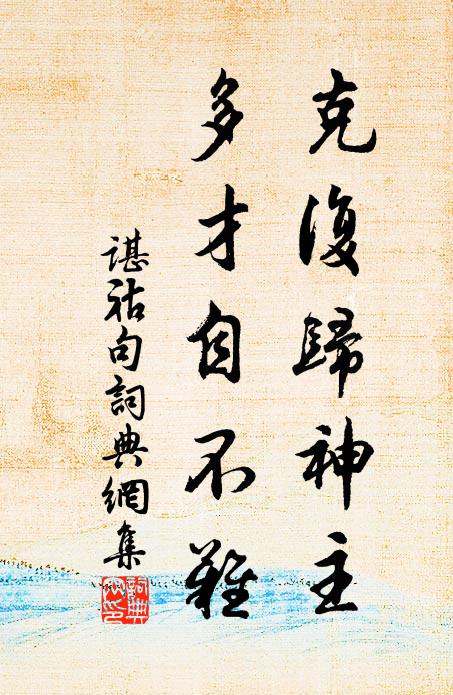 克復歸神主
多才自不難
谌祜句詞典網集
詞典